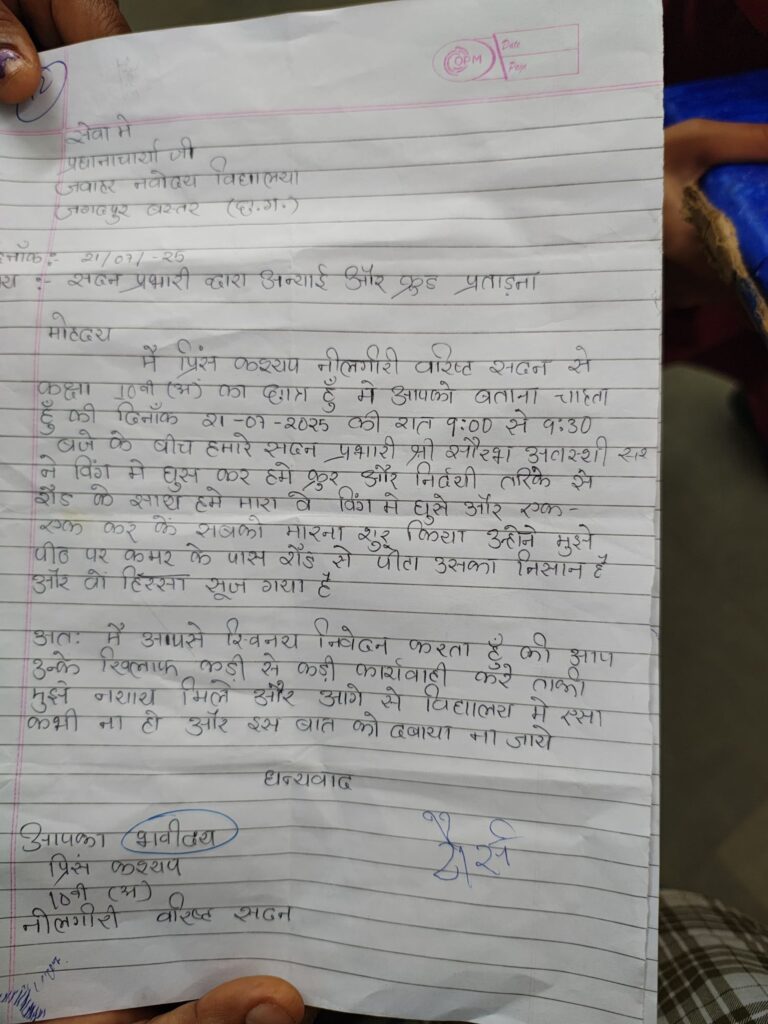 OPM
Date
Page
12
सेवा मे
प्रधानाचार्या जी
जवाहर नवोदय विद्यालया
जगदपुर बस्तर (छ.ग.)
नाँक:- 21/07/-25
य :- सदन प्रभारी द्वारा अन्याई और क्रुड प्रताड़ना
मोहदय
मै प्रिंस कश्यप नीलगीरी वरिष्ट सदन से
कक्षा 10वी (अ) का छात्र हुँ मे आपको बताना चाहता
हुँ की दिनाँक 21-07-2025 की रात 9:00 से 9:30
बजे के बीच हमारे सदन प्रभारी श्री सौरभ अवस्थी सर
ने विंग मे घुस कर हमे क्रुर और निर्दयी तरिके से
रॉड के साथ हमे मारा वे विंग मे घुसे और एक-
एक कर के सबको मारना शुरू किया उन्होने मुझे
पीठ पर कमर के पास रॉड से पीटा उसका निसान है
और वो हिस्सा सूज गया है
अतः मै आपसे स्विनय निवेदन करता हुँ की आप
उनके खिलाफ कड़ी से कड़ी कार्यवाही करे ताकी
मुझे नयाय मिले और आगे से विद्यालय मे एसा
कभी ना हो और इस बात को दबाया ना जाये
धन्यवाद
आपका भवीदय
प्रिंस कश्यप
10वी (अ)
नीलगीरी वरिष्ट सदन